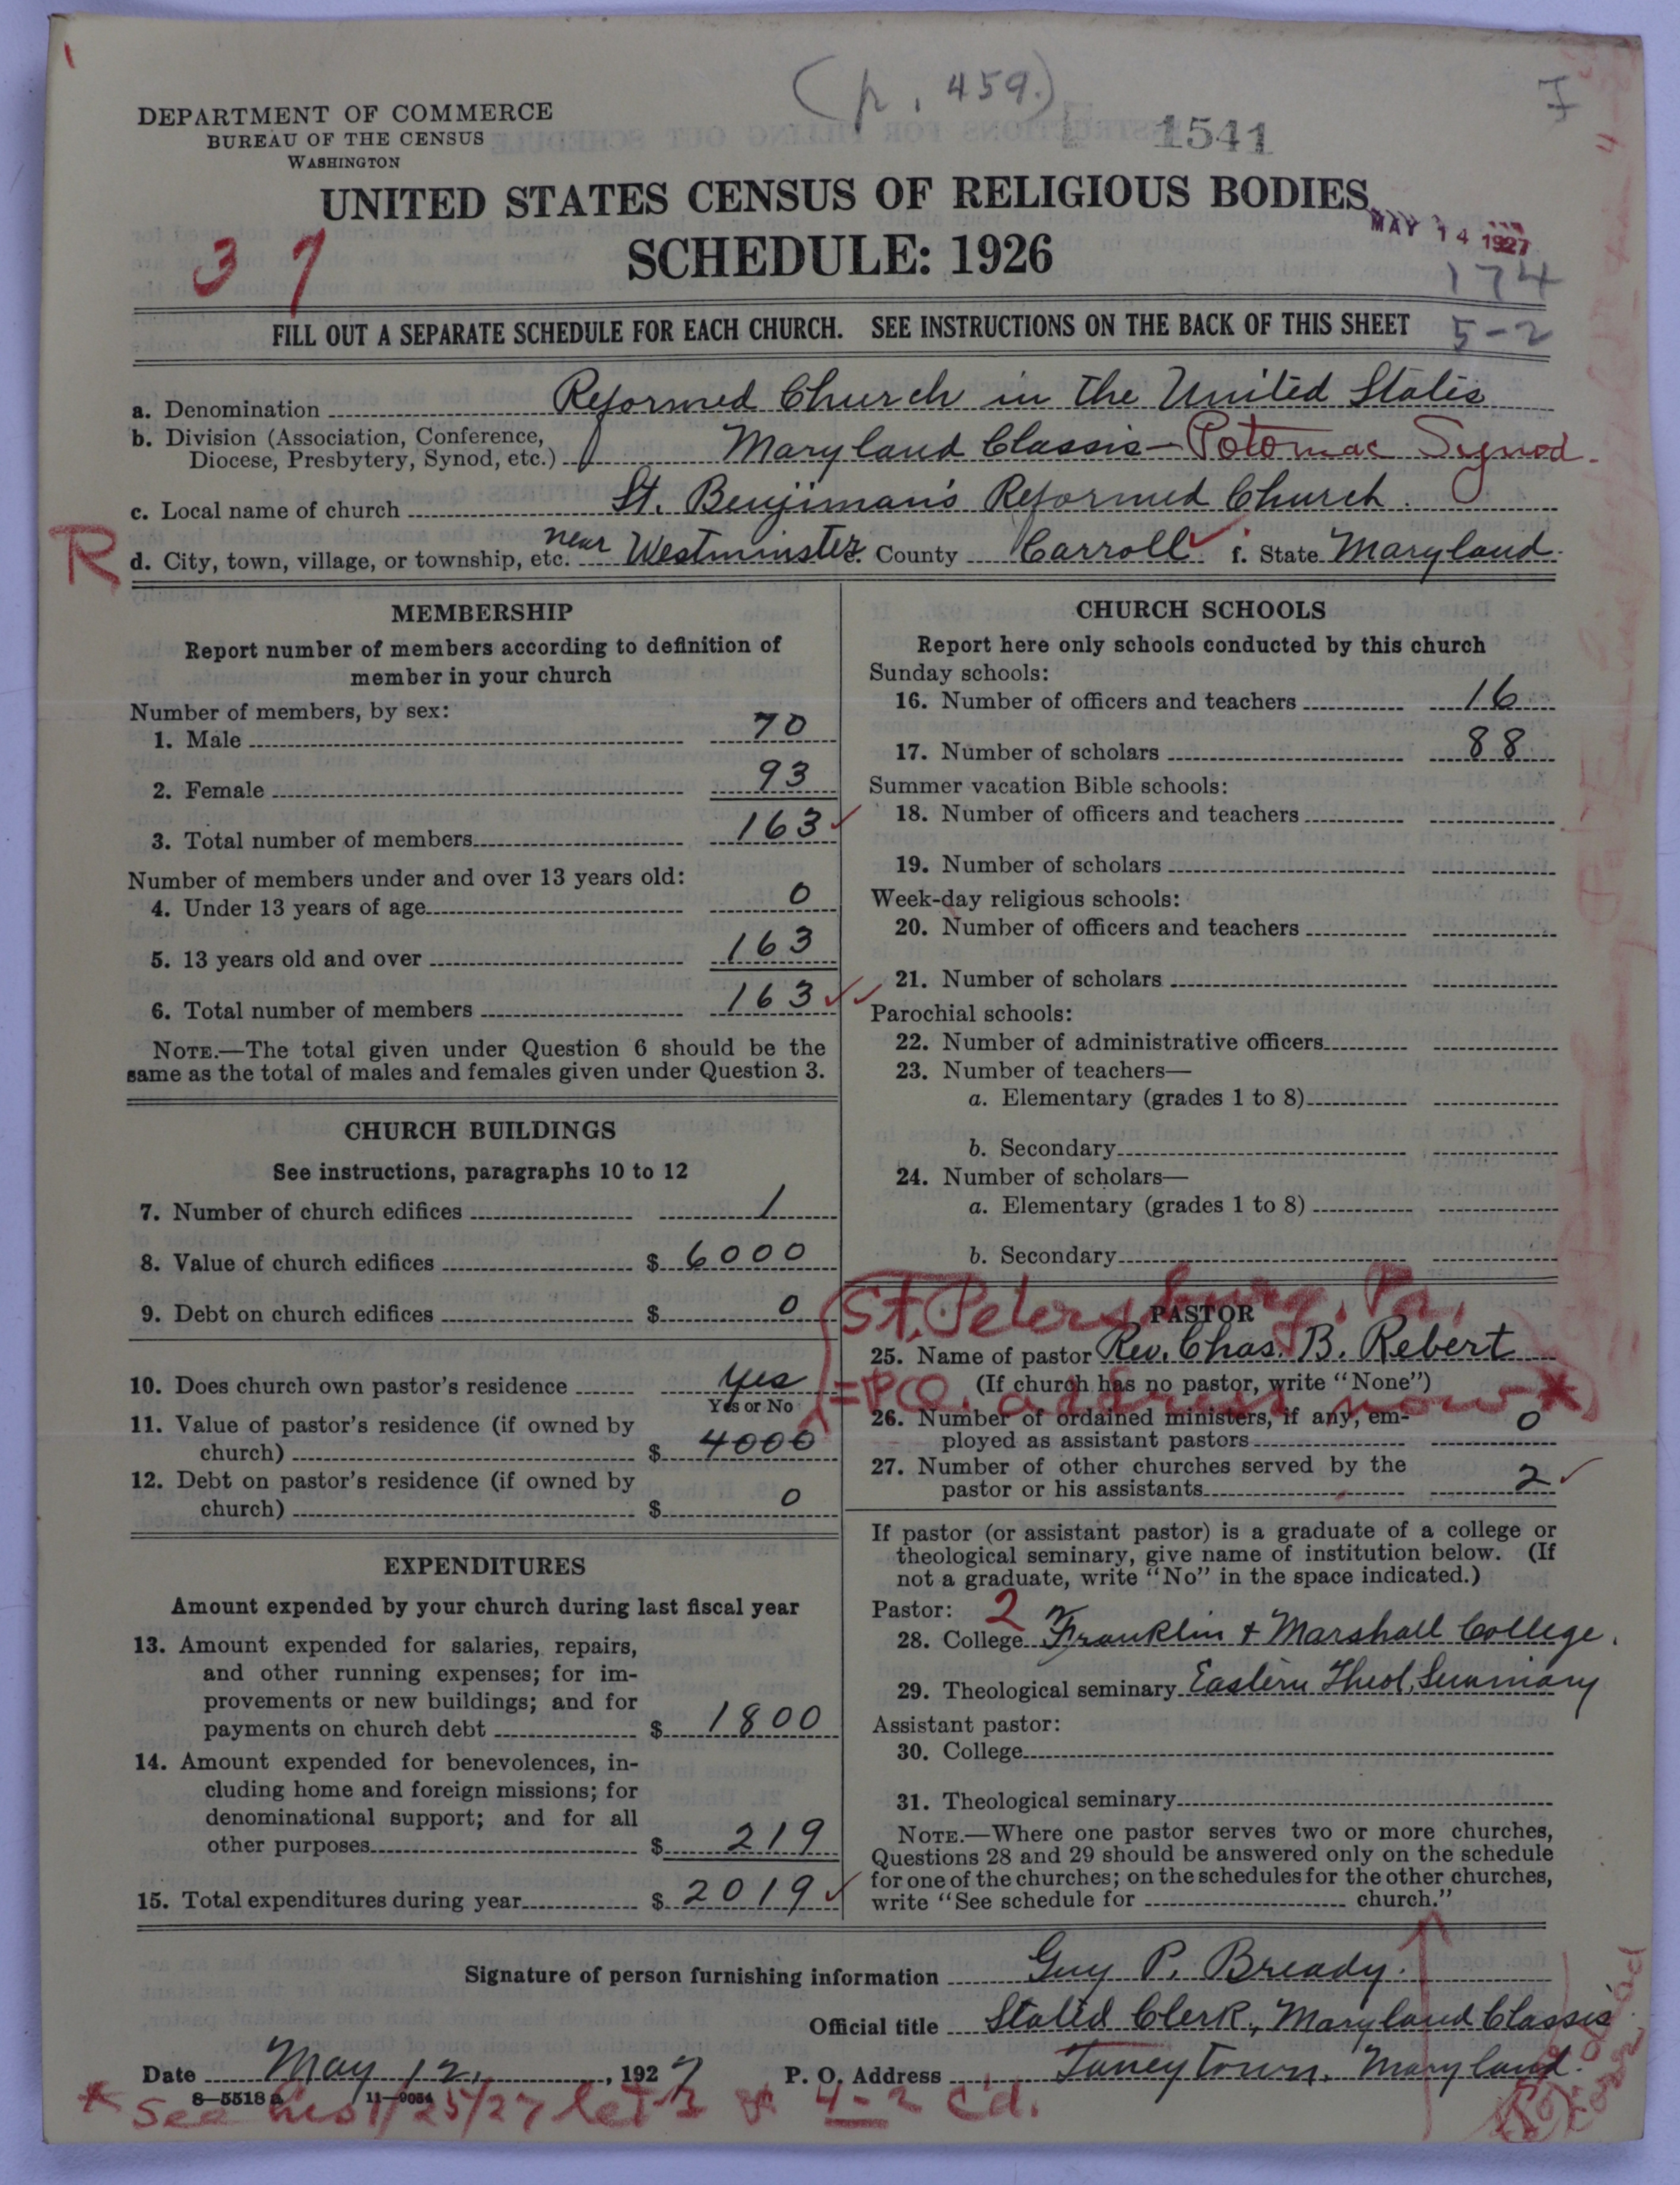 (p. 459.)
DEPARTMENT OF COMMERCE
BUREAU OF THE CENSUS
WASHINGTON
1541
UNITED STATES CENSUS OF RELIGIOUS BODIES
SCHEDULE: 1926
MAY 14 1927
37
174
FILL OUT A SEPARATE SCHEDULE FOR EACH CHURCH. SEE INSTRUCTIONS ON THE BACK OF THIS SHEET
5-2
a. Denomination Reformed Church in the United States
b. Division (Association, Conference,
Diocese, Presbytery, Synod, etc.) Maryland Classis - Potomac Synod.
c. Local name of church St. Benjiman's Reformed Church.
R
d. City, town, village, or township, etc. near Westminster. County Carroll f. State Maryland.
MEMBERSHIP
Report number of members according to definition of
member in your church
Number of members, by sex:
1. Male 70
2. Female 93
3. Total number of members 163
Number of members under and over 13 years old:
4. Under 13 years of age 0
5. 13 years old and over 163
6. Total number of members 163
NOTE.—The total given under Question 6 should be the
same as the total of males and females given under Question 3.
CHURCH BUILDINGS
See instructions, paragraphs 10 to 12
7. Number of church edifices 1
8. Value of church edifices $ 6000
9. Debt on church edifices $ 0
10. Does church own pastor's residence yes
Yes or No
11. Value of pastor's residence (if owned by
church) $ 4000
12. Debt on pastor's residence (if owned by
church) $ 0
EXPENDITURES
Amount expended by your church during last fiscal year
13. Amount expended for salaries, repairs,
and other running expenses; for im-
provements or new buildings; and for
payments on church debt $ 1800
14. Amount expended for benevolences, in-
cluding home and foreign missions; for
denominational support; and for all
other purposes $ 219
15. Total expenditures during year $ 2019
CHURCH SCHOOLS
Report here only schools conducted by this church
Sunday schools:
16. Number of officers and teachers 16
17. Number of scholars 88
Summer vacation Bible schools:
18. Number of officers and teachers
19. Number of scholars
Week-day religious schools:
20. Number of officers and teachers
21. Number of scholars
Parochial schools:
22. Number of administrative officers
23. Number of teachers—
a. Elementary (grades 1 to 8)
b. Secondary
24. Number of scholars—
a. Elementary (grades 1 to 8)
b. Secondary
St. Petersburg, Pa.
PASTOR
25. Name of pastor Rev. Chas. B. Rebert
(If church has no pastor, write "None")
= P.O. address now *
26. Number of ordained ministers, if any, em-
ployed as assistant pastors 0
27. Number of other churches served by the
pastor or his assistants 2
If pastor (or assistant pastor) is a graduate of a college or
theological seminary, give name of institution below. (If
not a graduate, write "No" in the space indicated.)
Pastor: 2
28. College Franklin + Marshall College.
29. Theological seminary Eastern Theol. Seminary
Assistant pastor:
30. College
31. Theological seminary
NOTE.—Where one pastor serves two or more churches,
Questions 28 and 29 should be answered only on the schedule
for one of the churches; on the schedules for the other churches,
write "See schedule for church."
Signature of person furnishing information Guy P. Bready.
Official title Stated Clerk, Maryland Classis
Date May 12, 1927 P. O. Address Taneytown, Maryland.
8-5518 a 11-9054
* See his 1/25/27 let 4-2 c'd.